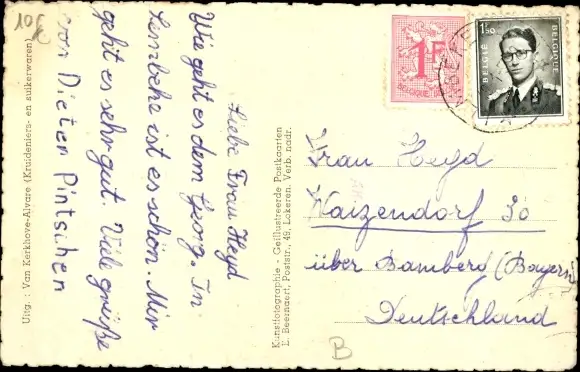 10€
Liebe Frau Heyd
Wie geht es dem Georg. In
Lembeke ist es schön. Mir
geht es sehr gut. Viele grüße
von Dieter Pintschen
Uitg.: Van Kerkhove-Alvare (Kruideniers- en suikerwaren)
Kunstfotographie - Geïllustreerde Postkaarten
E. Beernaert, Poststr., 49, Lokeren. Verb. nadr.
1F
BELGIQUE
1,50
BELGIË
BELGIQUE
Frau Heyd
Waizendorf 50
über Bamberg (Bayern)
Deutschland
B